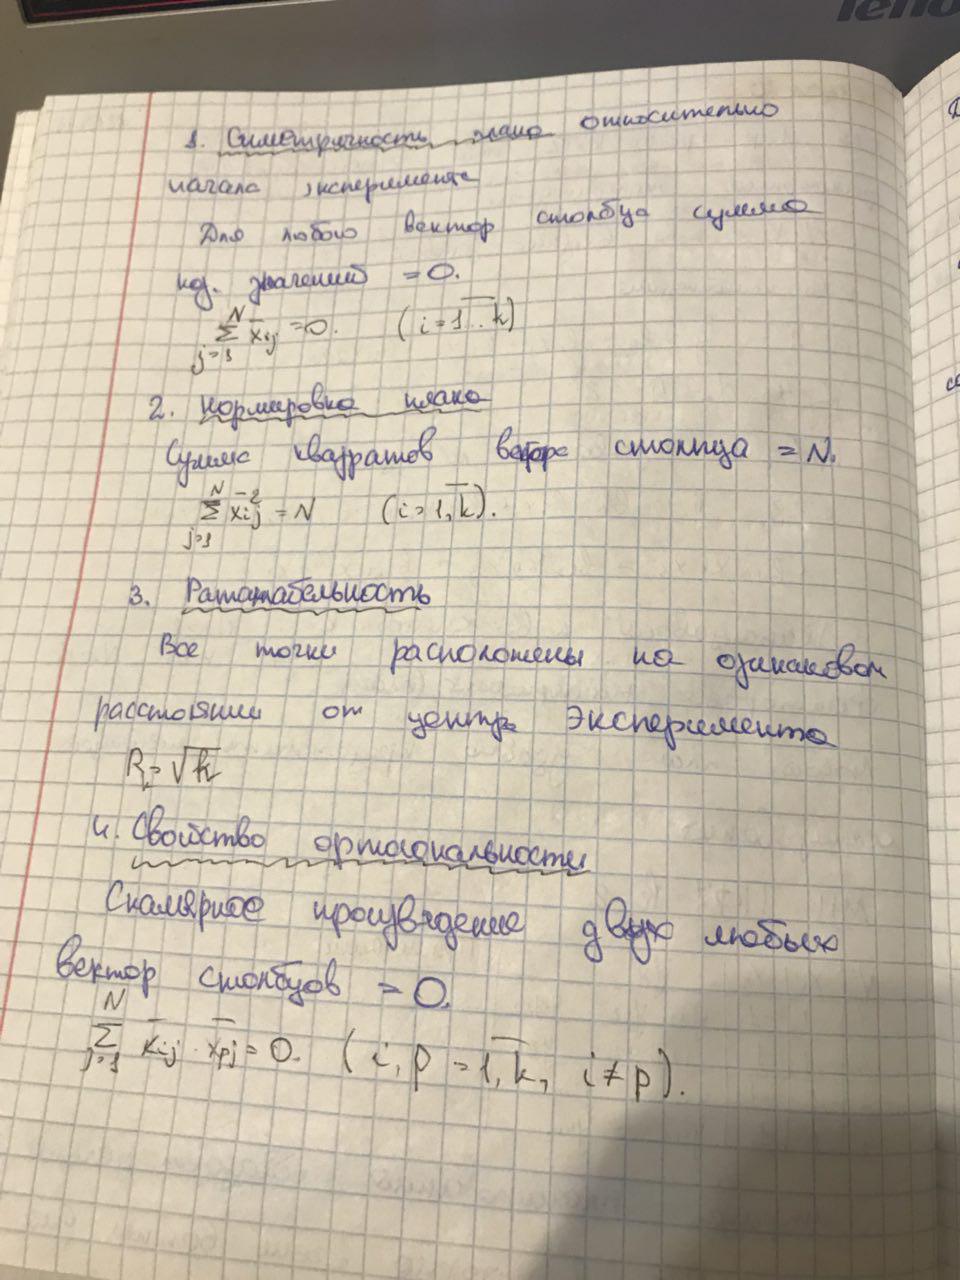 lenovo
1. Симетричность плана относительно
начала эксперимента
Для любого вектор столбца сумма
код. значений = 0.
N
Σ x̄ij = 0. (i = 1...k)
j=1
2. Нормировка плана
Сумма квадратов вектора столпца = N.
N
Σ x̄²ij = N (i = 1, k).
j=1
3. Рататабельность
Все точки расположены на одинаковом
расстоянии от центра эксперимента
R = √k
4. Свойство ортогональности
Скалярное произведение двух любых
вектор столбцов = 0.
N
Σ x̄ij · x̄pj = 0. (i, p = 1, k, i ≠ p).
j=1